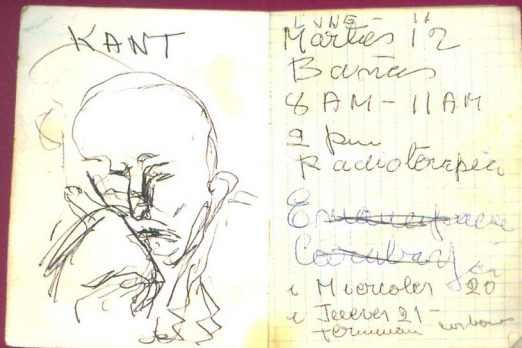 KANT
LUNE -
Martes 12
Bañas
8 AM - 11 AM
2 pm
Radioterapia
i Miercoles 20
i Jueves 21 -
terminan